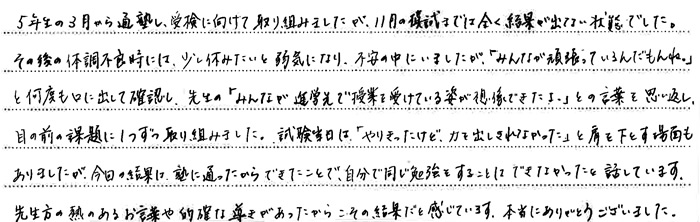 5年生の3月から通塾し、受検に向けて取り組みましたが、11月の模試までは全く結果が出ない状態でした。
その後の体調不良時には、少し休みたいと弱気になり、不安の中にいましたが、「みんなが頑張っているんだもんね。」
と何度も口に出して確認し、先生の「みんなが進学先で授業を受けている姿が想像できたよ。」との言葉を思い返し、
目の前の課題に1つずつ取り組みました。試験当日は、「やりきったけど、力を出しきれなかった」と肩を下とす場面も
ありましたが、今回の結果は、塾に通ったからできたことで、自分で同じ勉強をすることはできなかったと話しています。
先生方の熱のあるお言葉や的確な導きがあったからこその結果だと感じています。本当にありがとうございました。